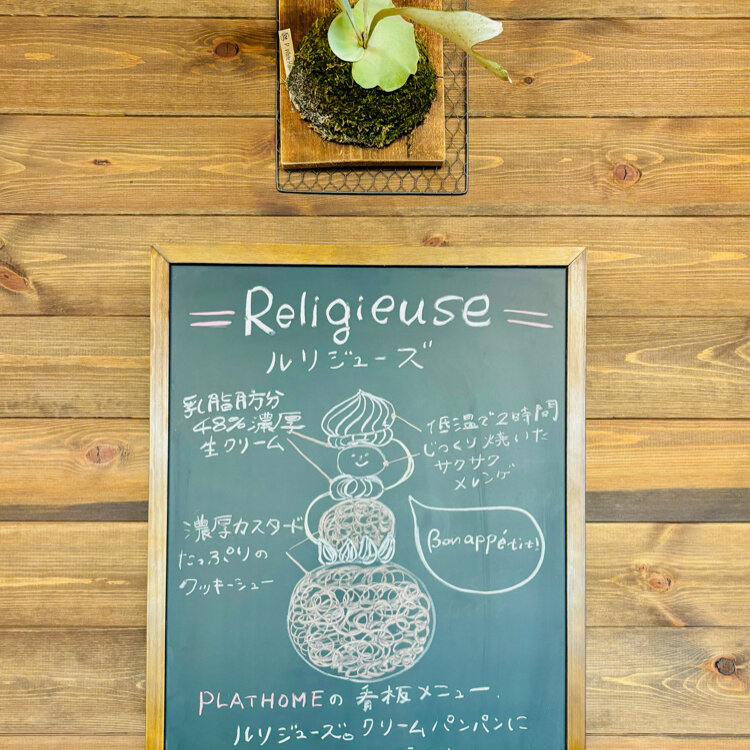 Religieuse
ルリジューズ
乳脂肪分
48%濃厚
生クリーム
低温で2時間
じっくり焼いた
サクサク
メレンゲ
濃厚カスタード
たっぷりの
クッキーシュー
Bon appétit!
PLATHOMEの看板メニュー、
ルリジューズ。クリームパンパンに